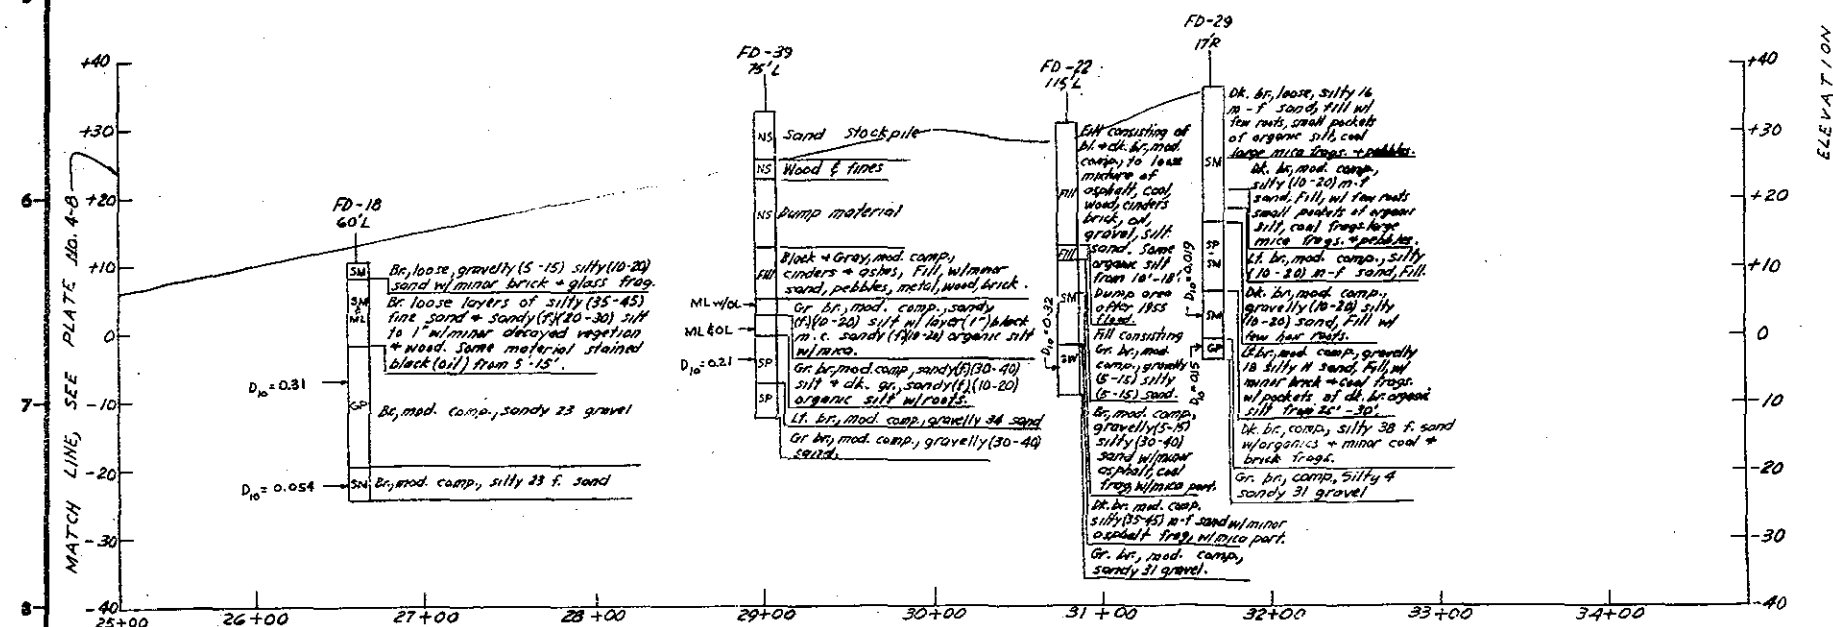 FD-29
17'R
FD-39
75'L
FD-22
115'L
FD-18
60'L
ELEVATION
+40
+30
+20
+10
0
-10
-20
-30
-40
+40
+30
+20
+10
0
-10
-20
-30
-40
6
7
8
MATCH LINE, SEE PLATE NO. 4-8
SM
Br., loose, gravelly (5-15) silty (10-20)
sand w/minor brick + glass frag.
SM
&
ML
Br. loose layers of silty (35-45)
fine sand + sandy (f)(20-30) silt
to 1" w/minor decayed vegetion
+ wood. Some material stained
black (oil) from 5'-15'.
D10 = 0.31
GP
Br., mod. comp., sandy 23 gravel
D10 = 0.054
SM
Br., mod. comp., silty 23 f. sand
NS
Sand Stockpile
NS
Wood & fines
NS
Dump material
Fill
Black + Gray, mod. comp.,
cinders + ashes, Fill, w/minor
sand, pebbles, metal, wood, brick.
ML w/OL
Gr br., mod. comp., sandy
(f)(10-20) silt w/ layer (1") black
m.c. sandy (f)(10-20) organic silt
w/mica.
ML & OL
Gr. br., mod. comp., sandy (f)(30-40)
silt + dk. gr., sandy (f)(10-20)
organic silt w/roots.
D10 = 0.21
SP
Lt. br., mod. comp., gravelly 34 sand
SP
Gr br., mod. comp., gravelly (30-40)
sand.
Fill
Fill consisting of
bl. + dk. br., mod.
comp., to loose
mixture of
asphalt, coal,
wood, cinders
brick, oil,
gravel, silt
sand. Some
organic silt
from 10'-18'.
Dump area
after 1955
flood.
Fill
Fill consisting
Gr. br., mod.
comp., gravelly
(5-15) silty
(5-15) sand.
SM
Br., mod. comp.,
gravelly (5-15)
silty (30-40)
sand w/minor
asphalt, coal
frag. w/mica part.
D10 = 0.32
Dk. br. mod. comp.
silty (35-45) m-f sand w/minor
asphalt frag. w/mica part.
SW
Gr. br., mod. comp.,
sandy 31 gravel.
SM
Dk. br., loose, silty 16
m-f sand, fill w/
few roots, small pockets
of organic silt, coal
large mica frags. + pebbles.
Dk. br., mod. comp.,
silty (10-20) m-f
sand, Fill, w/ few roots
small pockets of organic
silt, coal frags. large
mica frags. + pebbles.
SP
SM
Lt. br., mod. comp., silty
(10-20) m-f sand, Fill.
D10 = 0.019
Dk. br., mod. comp.,
gravelly (10-20) silty
(10-20) sand, Fill w/
few hair roots.
SM
Lt. br., mod. comp., gravelly
18 silty 11 sand, Fill, w/
minor brick + coal frags.
w/pockets of dk. br. organic
silt from 25'-30'.
D10 = 0.15
Dk. br., comp., silty 38 f. sand
w/organics + minor coal +
brick frags.
GP
Gr. br., comp., silty 4
sandy 31 gravel
25+00
26+00
27+00
28+00
29+00
30+00
31+00
32+00
33+00
34+00